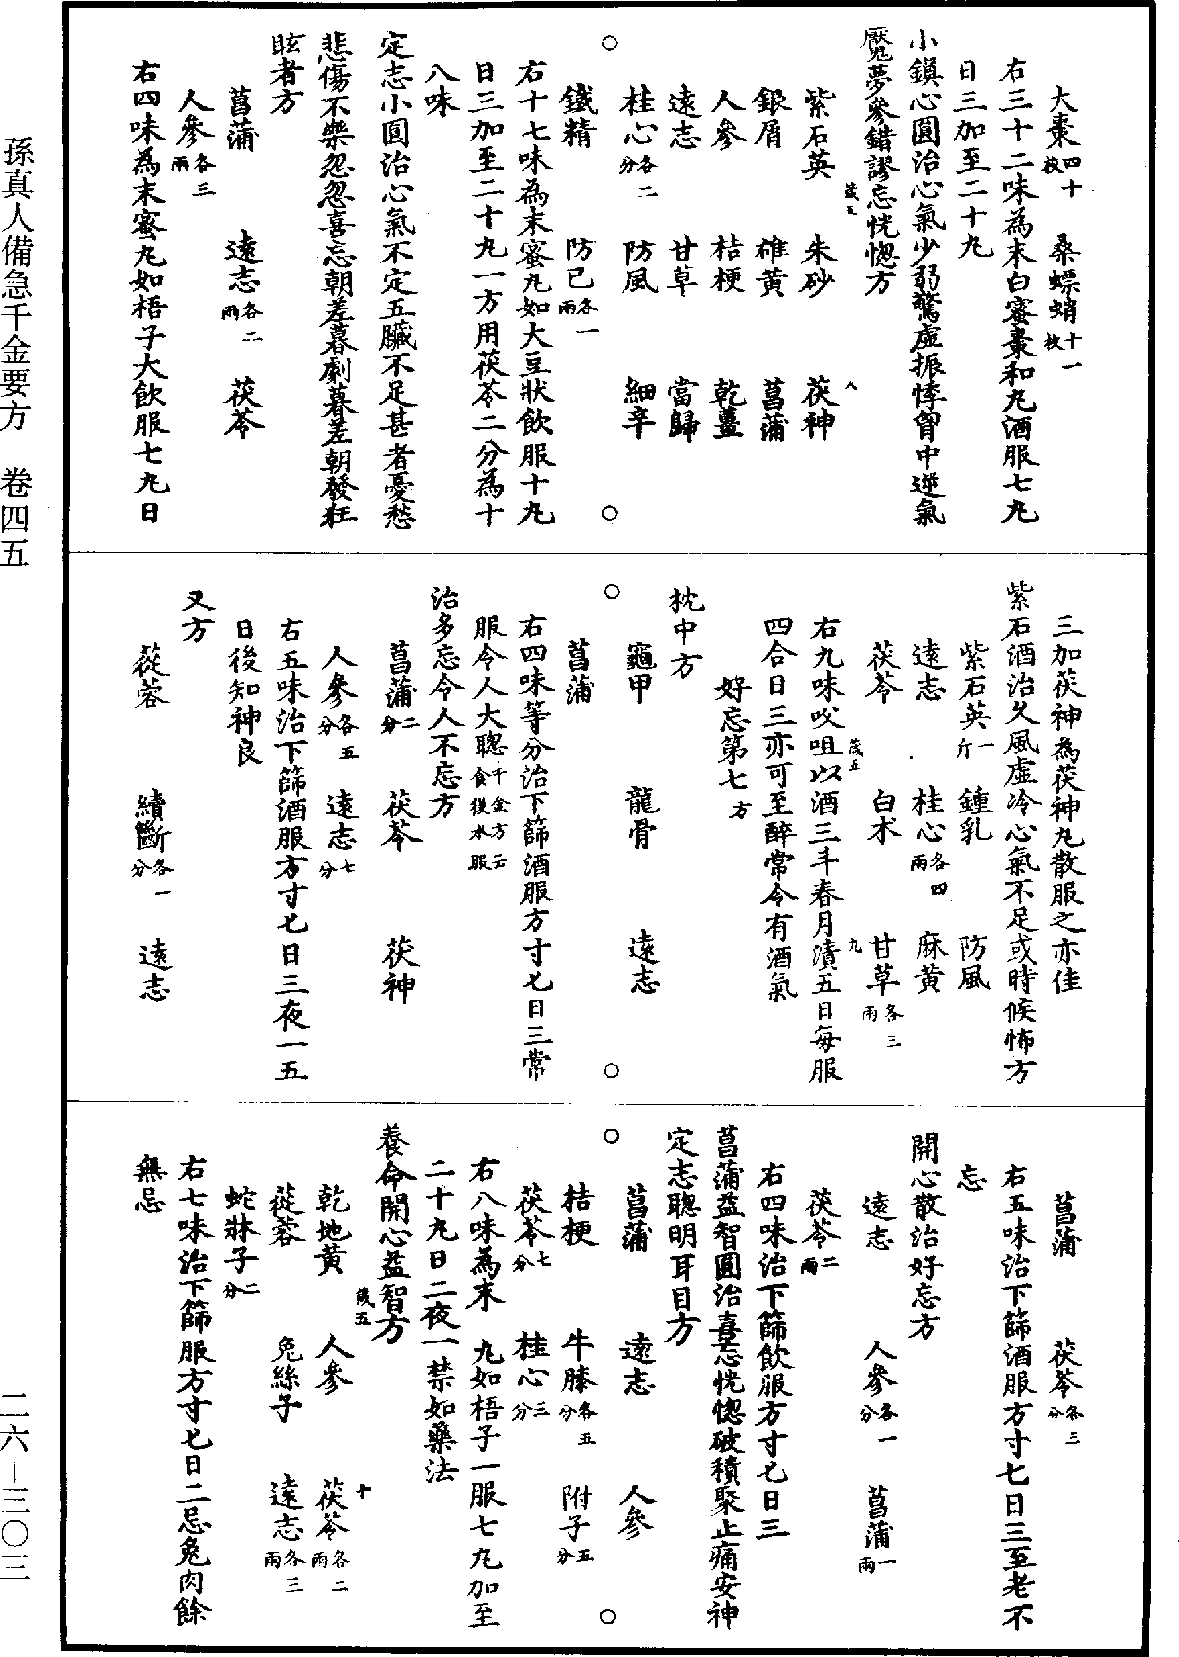 孫真人備急千金要方　卷四五
二六－三〇三
大棗四十枚　桑螵蛸十一枚
右三十二味為末白蜜棗和丸酒服七丸
日三加至二十丸
小鎮心圓治心氣少弱驚虛振悸胷中逆氣
魘夢參錯謬忘恍惚方
紫石英　朱砂　茯神
銀屑　雄黃　菖蒲
人參　桔梗　乾薑
遠志　甘草　當歸
桂心各二分　防風　細辛
鐵精　防己各一兩
右十七味為末蜜丸如大豆狀飲服十丸
日三加至二十丸一方用茯苓二分為十
八味
定志小圓治心氣不定五臟不足甚者憂愁
悲傷不樂忽忽喜忘朝差暮劇暮差朝發狂
眩者方
菖蒲　遠志各二兩　茯苓
人參各三兩
右四味為末蜜丸如梧子大飲服七丸日
三加茯神為茯神丸散服之亦佳
紫石酒治久風虛冷心氣不足或時候怖方
紫石英一斤　鍾乳　防風
遠志　桂心各四兩　麻黃
茯苓　白朮　甘草各三兩
右九味㕮咀以酒三斗春月漬五日每服
四合日三亦可至醉常令有酒氣
好忘第七方
枕中方
龜甲　龍骨　遠志
菖蒲
右四味等分治下篩酒服方寸匕日三常
服令人大聰千金方云食後水服
治多忘令人不忘方
菖蒲二分　茯苓　茯神
人參各五分　遠志七分
右五味治下篩酒服方寸匕日三夜一五
日後知神良
又方
蓯蓉　續斷各一分　遠志
菖蒲　茯苓各三分
右五味治下篩酒服方寸七日三至老不
忘
開心散治好忘方
遠志　人參各一分　菖蒲一兩
茯苓二兩
右四味治下篩飲服方寸匕日三
菖蒲益智圓治喜忘恍惚破積聚止痛安神
定志聰明耳目方
菖蒲　遠志　人參
桔梗　牛膝各五分　附子五分
茯苓七分　桂心三分
右八味為末　丸如梧子一服七丸加至
二十丸日二夜一禁如藥法
養命開心益智方
乾地黃　人參　茯苓各二兩
蓯蓉　兔絲子　遠志各三兩
蛇牀子二分
右七味治下篩服方寸匕日二忌兔肉餘
無忌
箴五
八
箴五
九
箴五
十